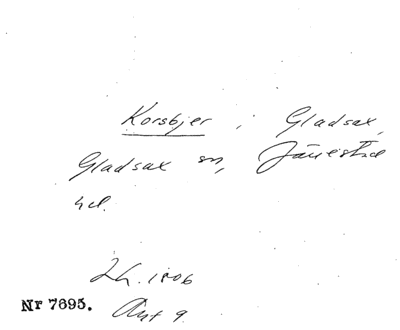 Korsbjer i Gladsax,
Gladsax sn, Järrestad
hd.
Lh. 1806
Nr 7695. Akt 9